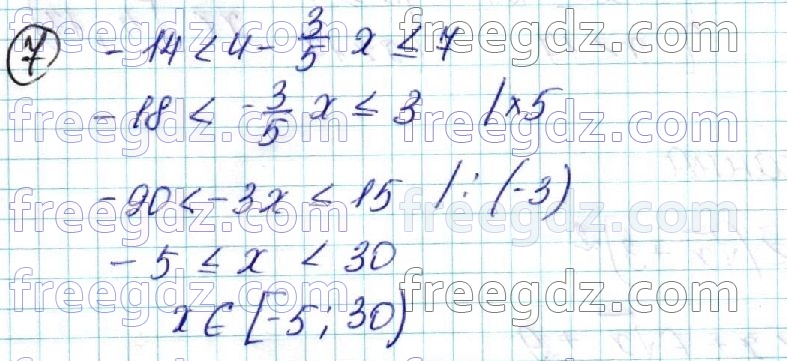 7 -14 < 4 - 3/5 x ≤ 7
-18 < -3/5 x ≤ 3 /×5
-90 < -3x ≤ 15 /: (-3)
-5 ≤ x < 30
x ∈ [-5; 30)
freegdz.com freegdz.com
freegdz.com freegdz.com
freegdz.com freegdz.com
freegdz.com freegdz.com
freegdz.com freegdz.com